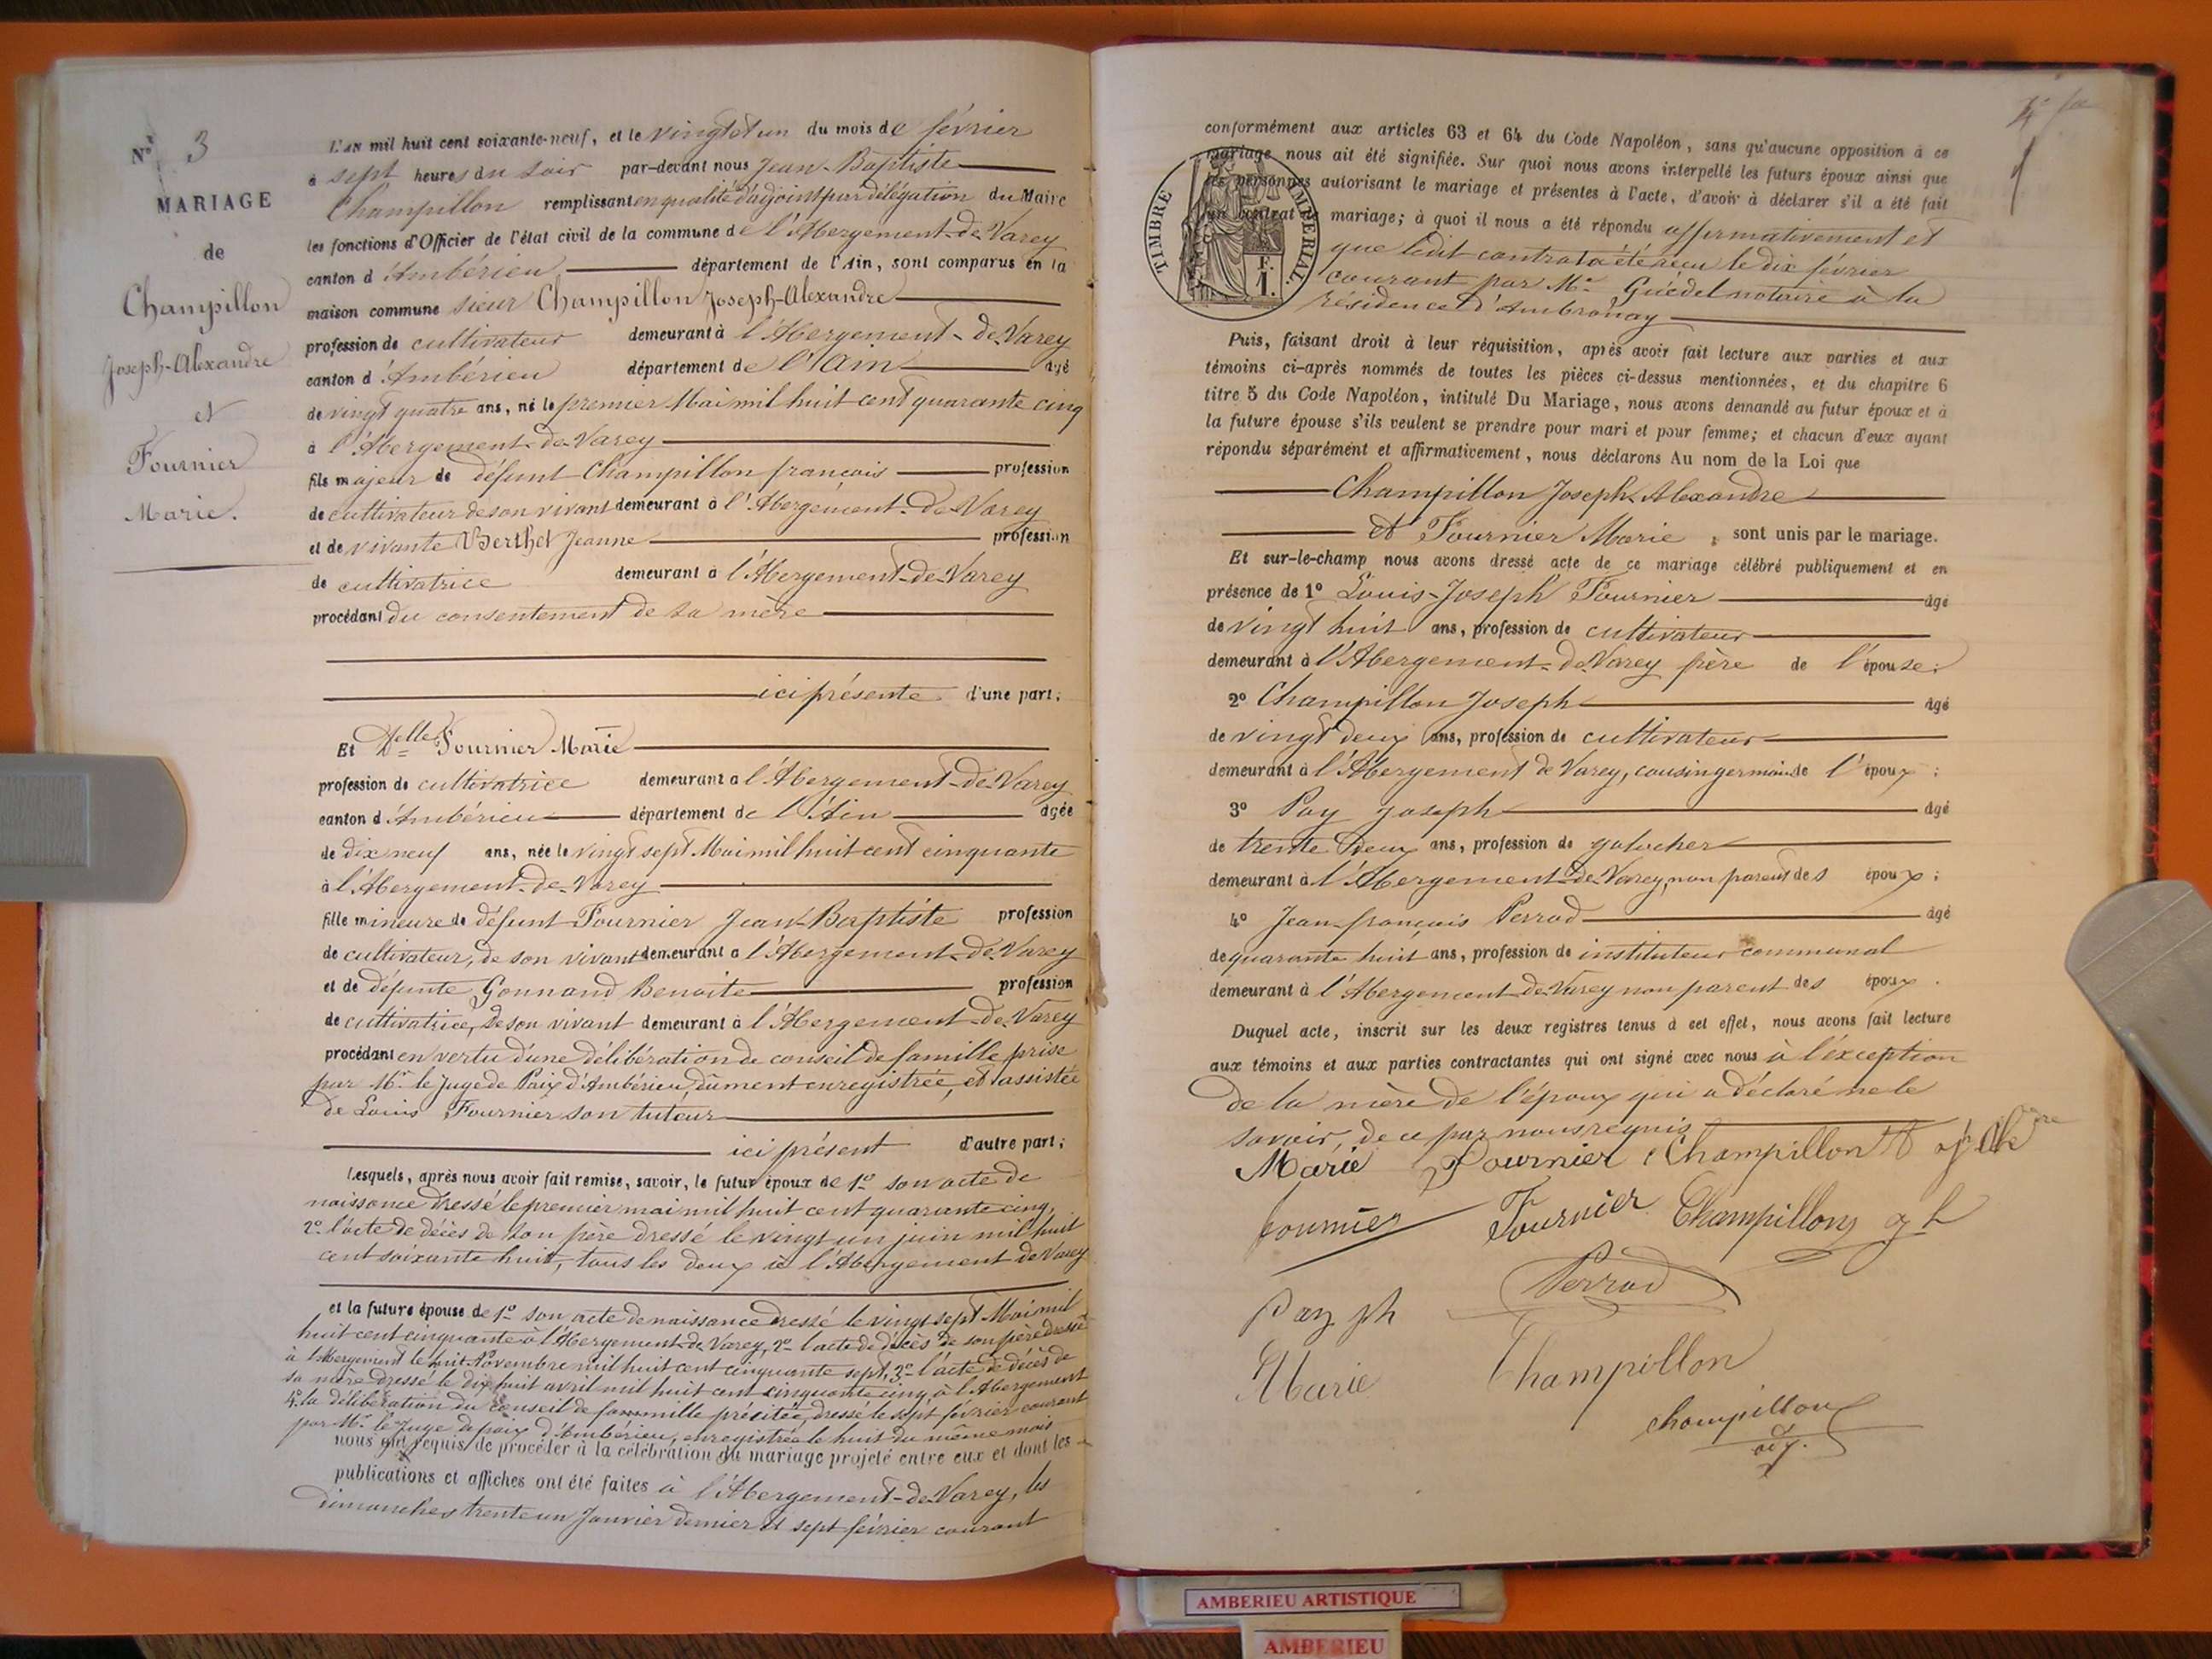 N° 3
MARIAGE
de
Champillon
Joseph-Alexandre
et
Fournier
Marie.
L'AN mil huit cent soixante-neuf, et le vingt et un du mois de février
à sept heures du soir par-devant nous Jean-Baptiste
Champillon remplissant en qualité d'adjoint par délégation du Maire
les fonctions d'Officier de l'état civil de la commune de l'Abergement-de-Varey
canton d'Ambérieu, département de l'Ain, sont comparus en la
maison commune sieur Champillon Joseph-Alexandre
profession de cultivateur demeurant à l'Abergement-de-Varey
canton d'Ambérieu département de l'Ain âgé
de vingt quatre ans, né le premier Mai mil huit cent quarante cinq
à l'Abergement-de-Varey
fils majeur de défunt Champillon françois profession
de cultivateur de son vivant demeurant à l'Abergement-de-Varey
et de vivante Berthet Jeanne profession
de cultivatrice demeurant à l'Abergement-de-Varey
procédant du consentement de sa mère
ici présente d'une part;
Et Delle Fournier Marie
profession de cultivatrice demeurant à l'Abergement-de-Varey
canton d'Ambérieu département de l'Ain âgée
de dix neuf ans, née le vingt sept Mai mil huit cent cinquante
à l'Abergement-de-Varey
fille mineure de défunt Fournier Jean-Baptiste profession
de cultivateur, de son vivant demeurant à l'Abergement-de-Varey
et de défunte Gonnand Benoite profession
de cultivatrice, de son vivant demeurant à l'Abergement-de-Varey
procédant en vertu d'une délibération de conseil de famille prise
par Mr le Juge de Paix d'Ambérieu, dûment enregistrée, et assistée
de Louis Fournier son tuteur
ici présent d'autre part;
Lesquels, après nous avoir fait remise, savoir, le futur époux de 1° son acte de
naissance dressé le premier mai mil huit cent quarante cinq,
2° l'acte de décès de son père dressé le vingt un juin mil huit
cent soixante huit, tous les deux à l'Abergement de Varey
et la future épouse de 1° son acte de naissance dressé le vingt sept Mai mil
huit cent cinquante à l'Abergement-de-Varey, 2° l'acte de décès de son père dressé
à l'Abergement le huit Novembre mil huit cent cinquante sept, 3° l'acte de décès de
sa mère dressé le dix huit avril mil huit cent cinquante cinq à l'Abergement
4° la délibération du conseil de fammille précitée, dressé le sept février courant
par Mr le Juge de paix d'Ambérieu, enregistrée le huit du même mois
nous ont requis de procéder à la célébration du mariage projeté entre eux et dont les
publications et affiches ont été faites à l'Abergement-de-Varey, les
dimanches trente un Janvier dernier et sept février courant
conformément aux articles 63 et 64 du Code Napoléon, sans qu'aucune opposition à ce
mariage nous ait été signifiée. Sur quoi nous avons interpellé les futurs époux ainsi que
les personnes autorisant le mariage et présentes à l'acte, d'avoir à déclarer s'il a été fait
un contrat de mariage; à quoi il nous a été répondu affirmativement et
que ledit contrat a été reçu le dix février
courant par Me Guédel notaire à la
résidence d'Ambronay
TIMBRE IMPÉRIAL
F.
1.
Puis, faisant droit à leur réquisition, après avoir fait lecture aux parties et aux
témoins ci-après nommés de toutes les pièces ci-dessus mentionnées, et du chapitre 6
titre 5 du Code Napoléon, intitulé Du Mariage, nous avons demandé au futur époux et à
la future épouse s'ils veulent se prendre pour mari et pour femme; et chacun d'eux ayant
répondu séparément et affirmativement, nous déclarons Au nom de la Loi que
Champillon Joseph-Alexandre
et Fournier Marie, sont unis par le mariage.
Et sur-le-champ nous avons dressé acte de ce mariage célébré publiquement et en
présence de 1° Louis-Joseph Fournier âgé
de vingt huit ans, profession de cultivateur
demeurant à l'Abergement-de-Varey frère de l'épouse;
2° Champillon Joseph âgé
de vingt deux ans, profession de cultivateur
demeurant à l'Abergement de Varey, cousin germain de l'époux;
3° Pay joseph âgé
de trente deux ans, profession de galocher
demeurant à l'Abergement-de-Varey, non parent des époux;
4° Jean-françois Perrod âgé
de quarante huit ans, profession de instituteur communal
demeurant à l'Abergement-de-Varey non parent des époux.
Duquel acte, inscrit sur les deux registres tenus à cet effet, nous avons fait lecture
aux témoins et aux parties contractantes qui ont signé avec nous à l'exception
de la mère de l'époux qui a déclaré ne le
savoir, de ce par nous requis
Marie Fournier Champillon
fournier Fournier Champillon jh
Perrod
Pay jh
Marie Champillon
champillon
adj.
AMBERIEU ARTISTIQUE
AMBERIEU